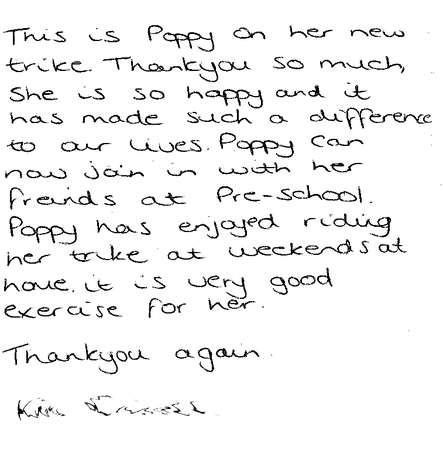 This is Poppy on her new
trike. Thankyou so much,
She is so happy and it
has made such a difference
to our lives. Poppy can
now join in with her
freinds at Pre-school.
Poppy has enjoyed riding
her trike at weekends at
home. it is very good
exercise for her.
Thankyou again.